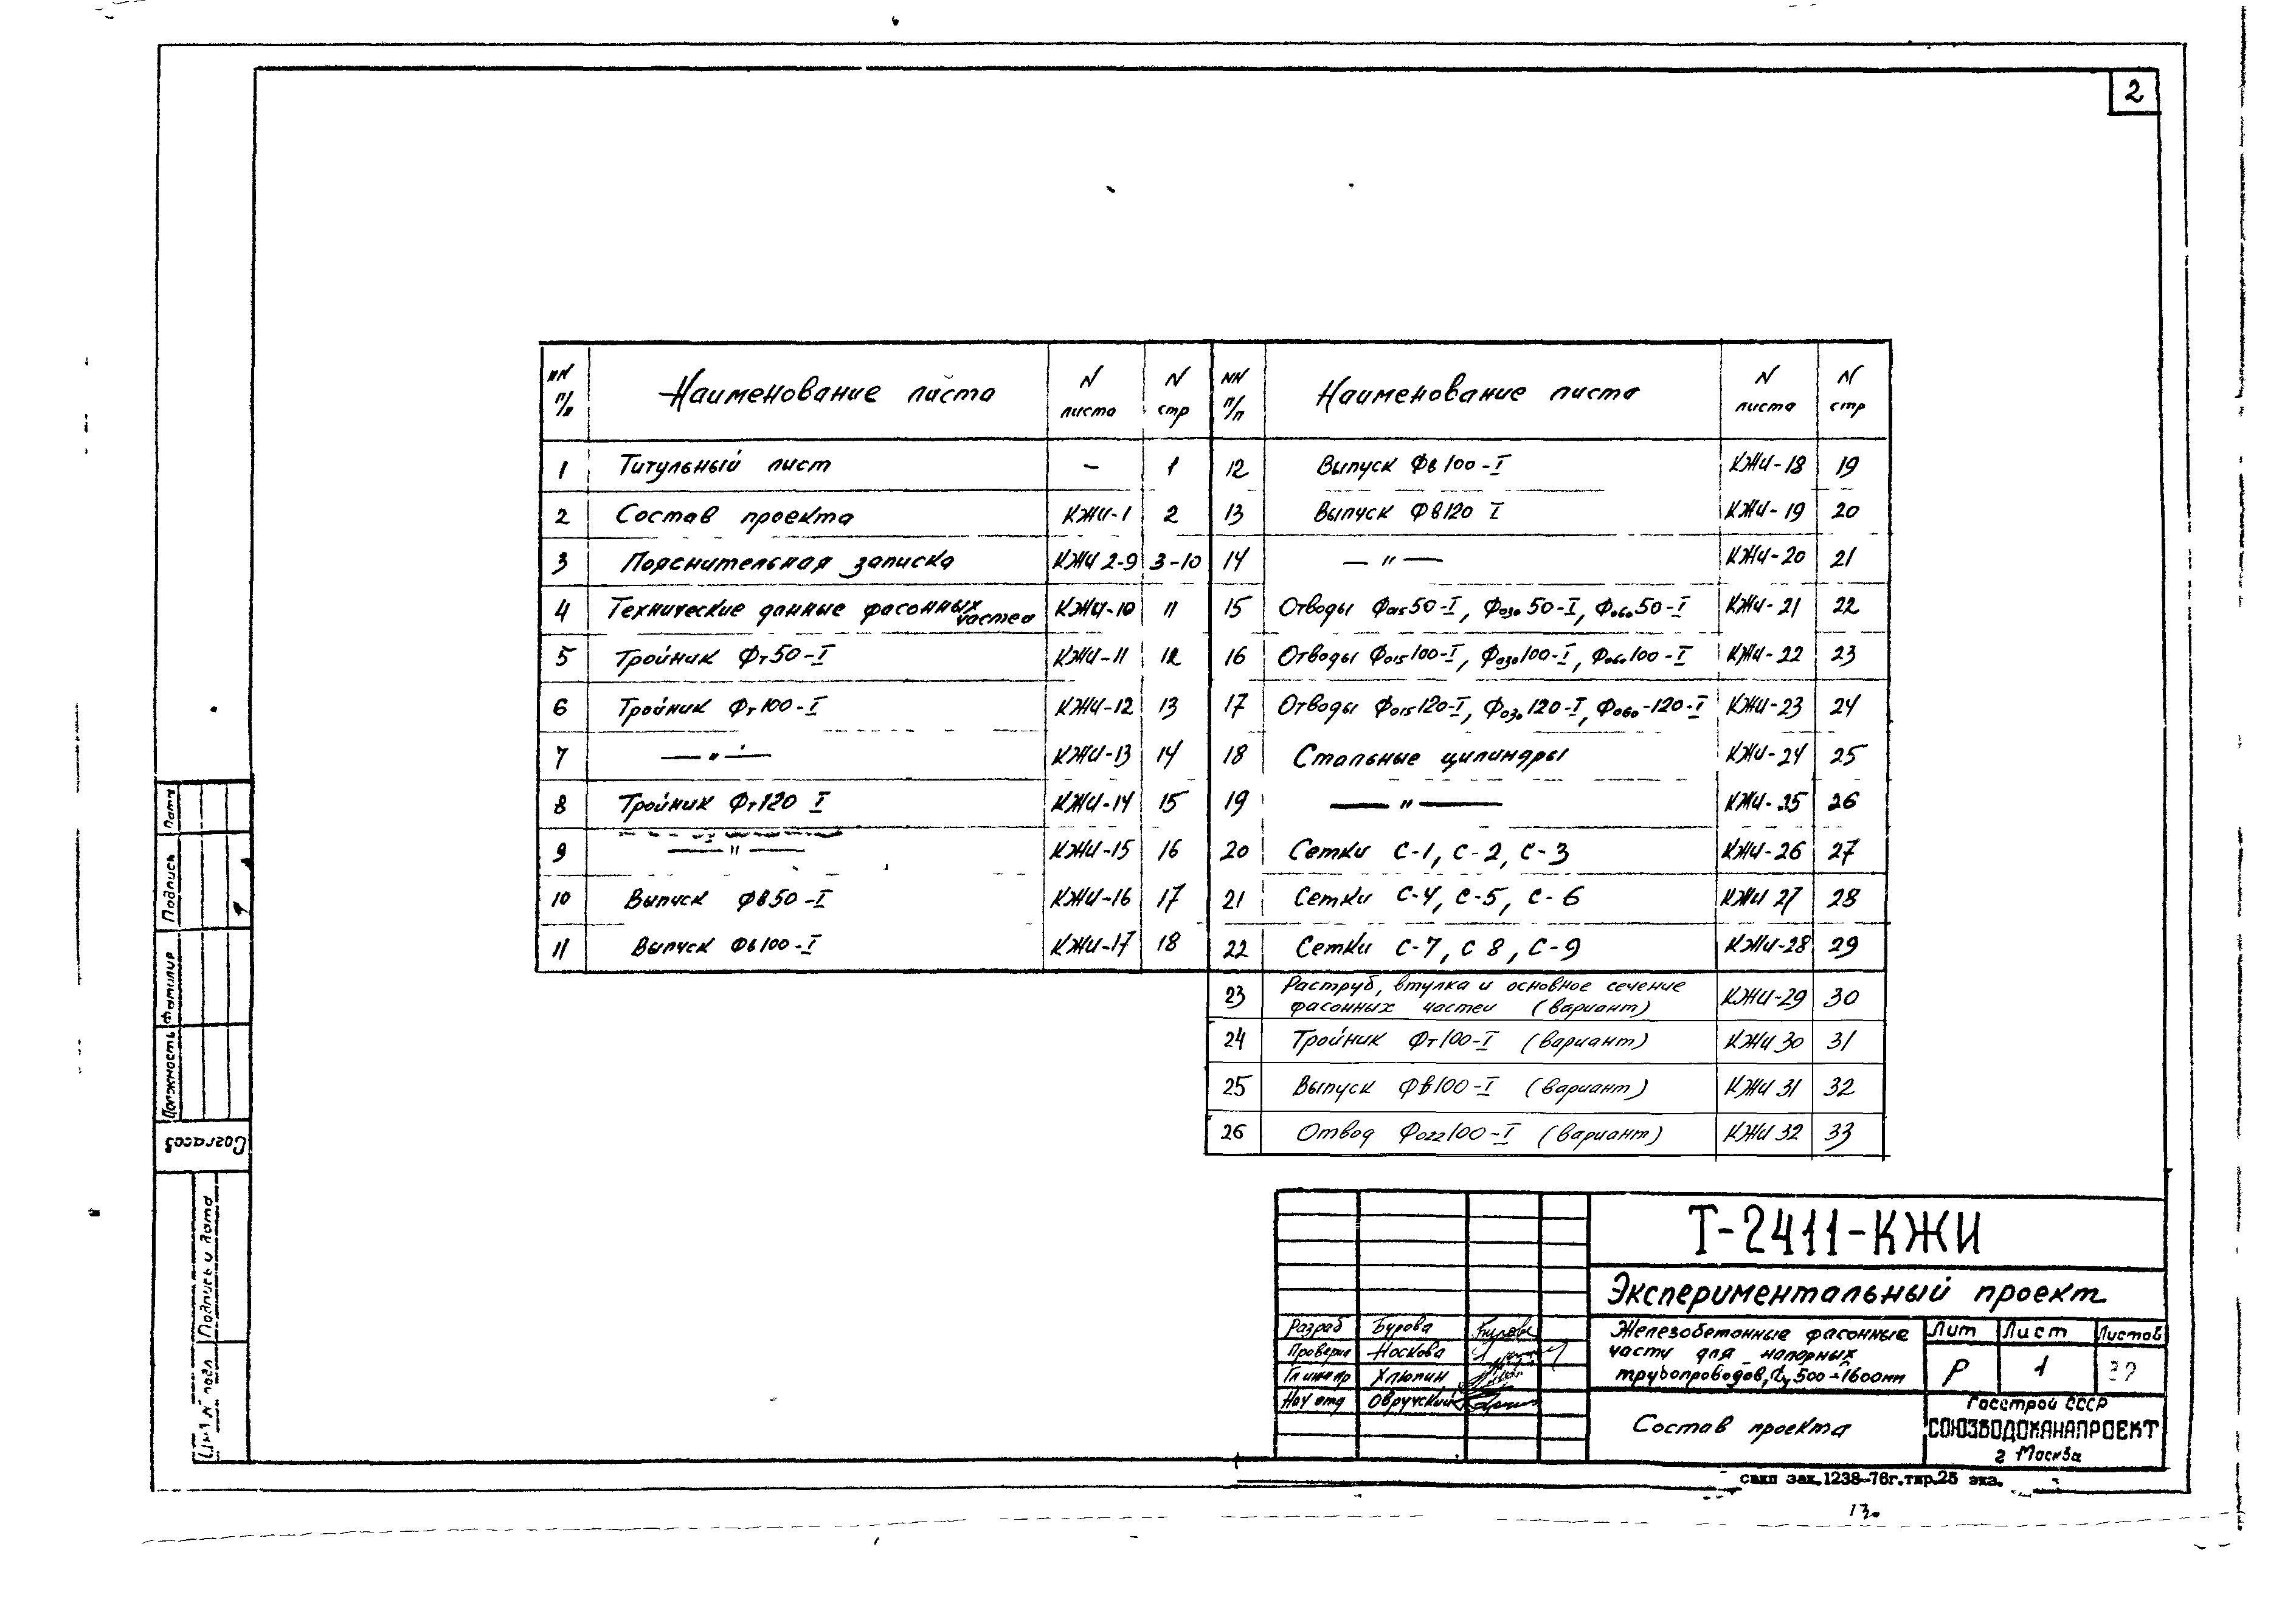 2
NN п/п Наименование листа N листа N стр
1 Титульный лист — 1
2 Состав проекта КЖИ-1 2
3 Пояснительная записка КЖИ 2-9 3-10
4 Технические данные фасонных частей КЖИ-10 11
5 Тройник Фт50-I КЖИ-11 12
6 Тройник Фт100-I КЖИ-12 13
7 — " — КЖИ-13 14
8 Тройник Фт120 I КЖИ-14 15
9 — " — КЖИ-15 16
10 Выпуск Фв50-I КЖИ-16 17
11 Выпуск Фв100-I КЖИ-17 18
NN п/п Наименование листа N листа N стр
12 Выпуск Фв100-I КЖИ-18 19
13 Выпуск Фв120 I КЖИ-19 20
14 — " — КЖИ-20 21
15 Отводы Фо15 50-I, Фо30 50-I, Фо60 50-I КЖИ-21 22
16 Отводы Фо15 100-I, Фо30 100-I, Фо60 100-I КЖИ-22 23
17 Отводы Фо15 120-I, Фо30 120-I, Фо60-120-I КЖИ-23 24
18 Стальные цилиндры КЖИ-24 25
19 — " — КЖИ-25 26
20 Сетки С-1, С-2, С-3 КЖИ-26 27
21 Сетки С-4, С-5, С-6 КЖИ 27 28
22 Сетки С-7, С 8, С-9 КЖИ-28 29
23 Раструб, втулка и основное сечение
фасонных частей (вариант) КЖИ-29 30
24 Тройник Фт100-I (вариант) КЖИ 30 31
25 Выпуск Фв100-I (вариант) КЖИ 31 32
26 Отвод Фо22 100-I (вариант) КЖИ 32 33
Дата
Подпись
Фамилия
Должность
Согласов
Подпись и дата
Инв N подл
Т-2411-КЖИ
Экспериментальный проект
Разраб Бурова
Проверил Носкова
Гл инж пр Хлюпин
Нач отд Овручский
Железобетонные фасонные
части для напорных
трубопроводов, Фу 500-1600мм
Лит Лист Листов
Р 1
Состав проекта
Госстрой СССР
СОЮЗВОДОКАНАЛПРОЕКТ
г Москва
свкп зак. 1238-76г. тир. 25 экз.